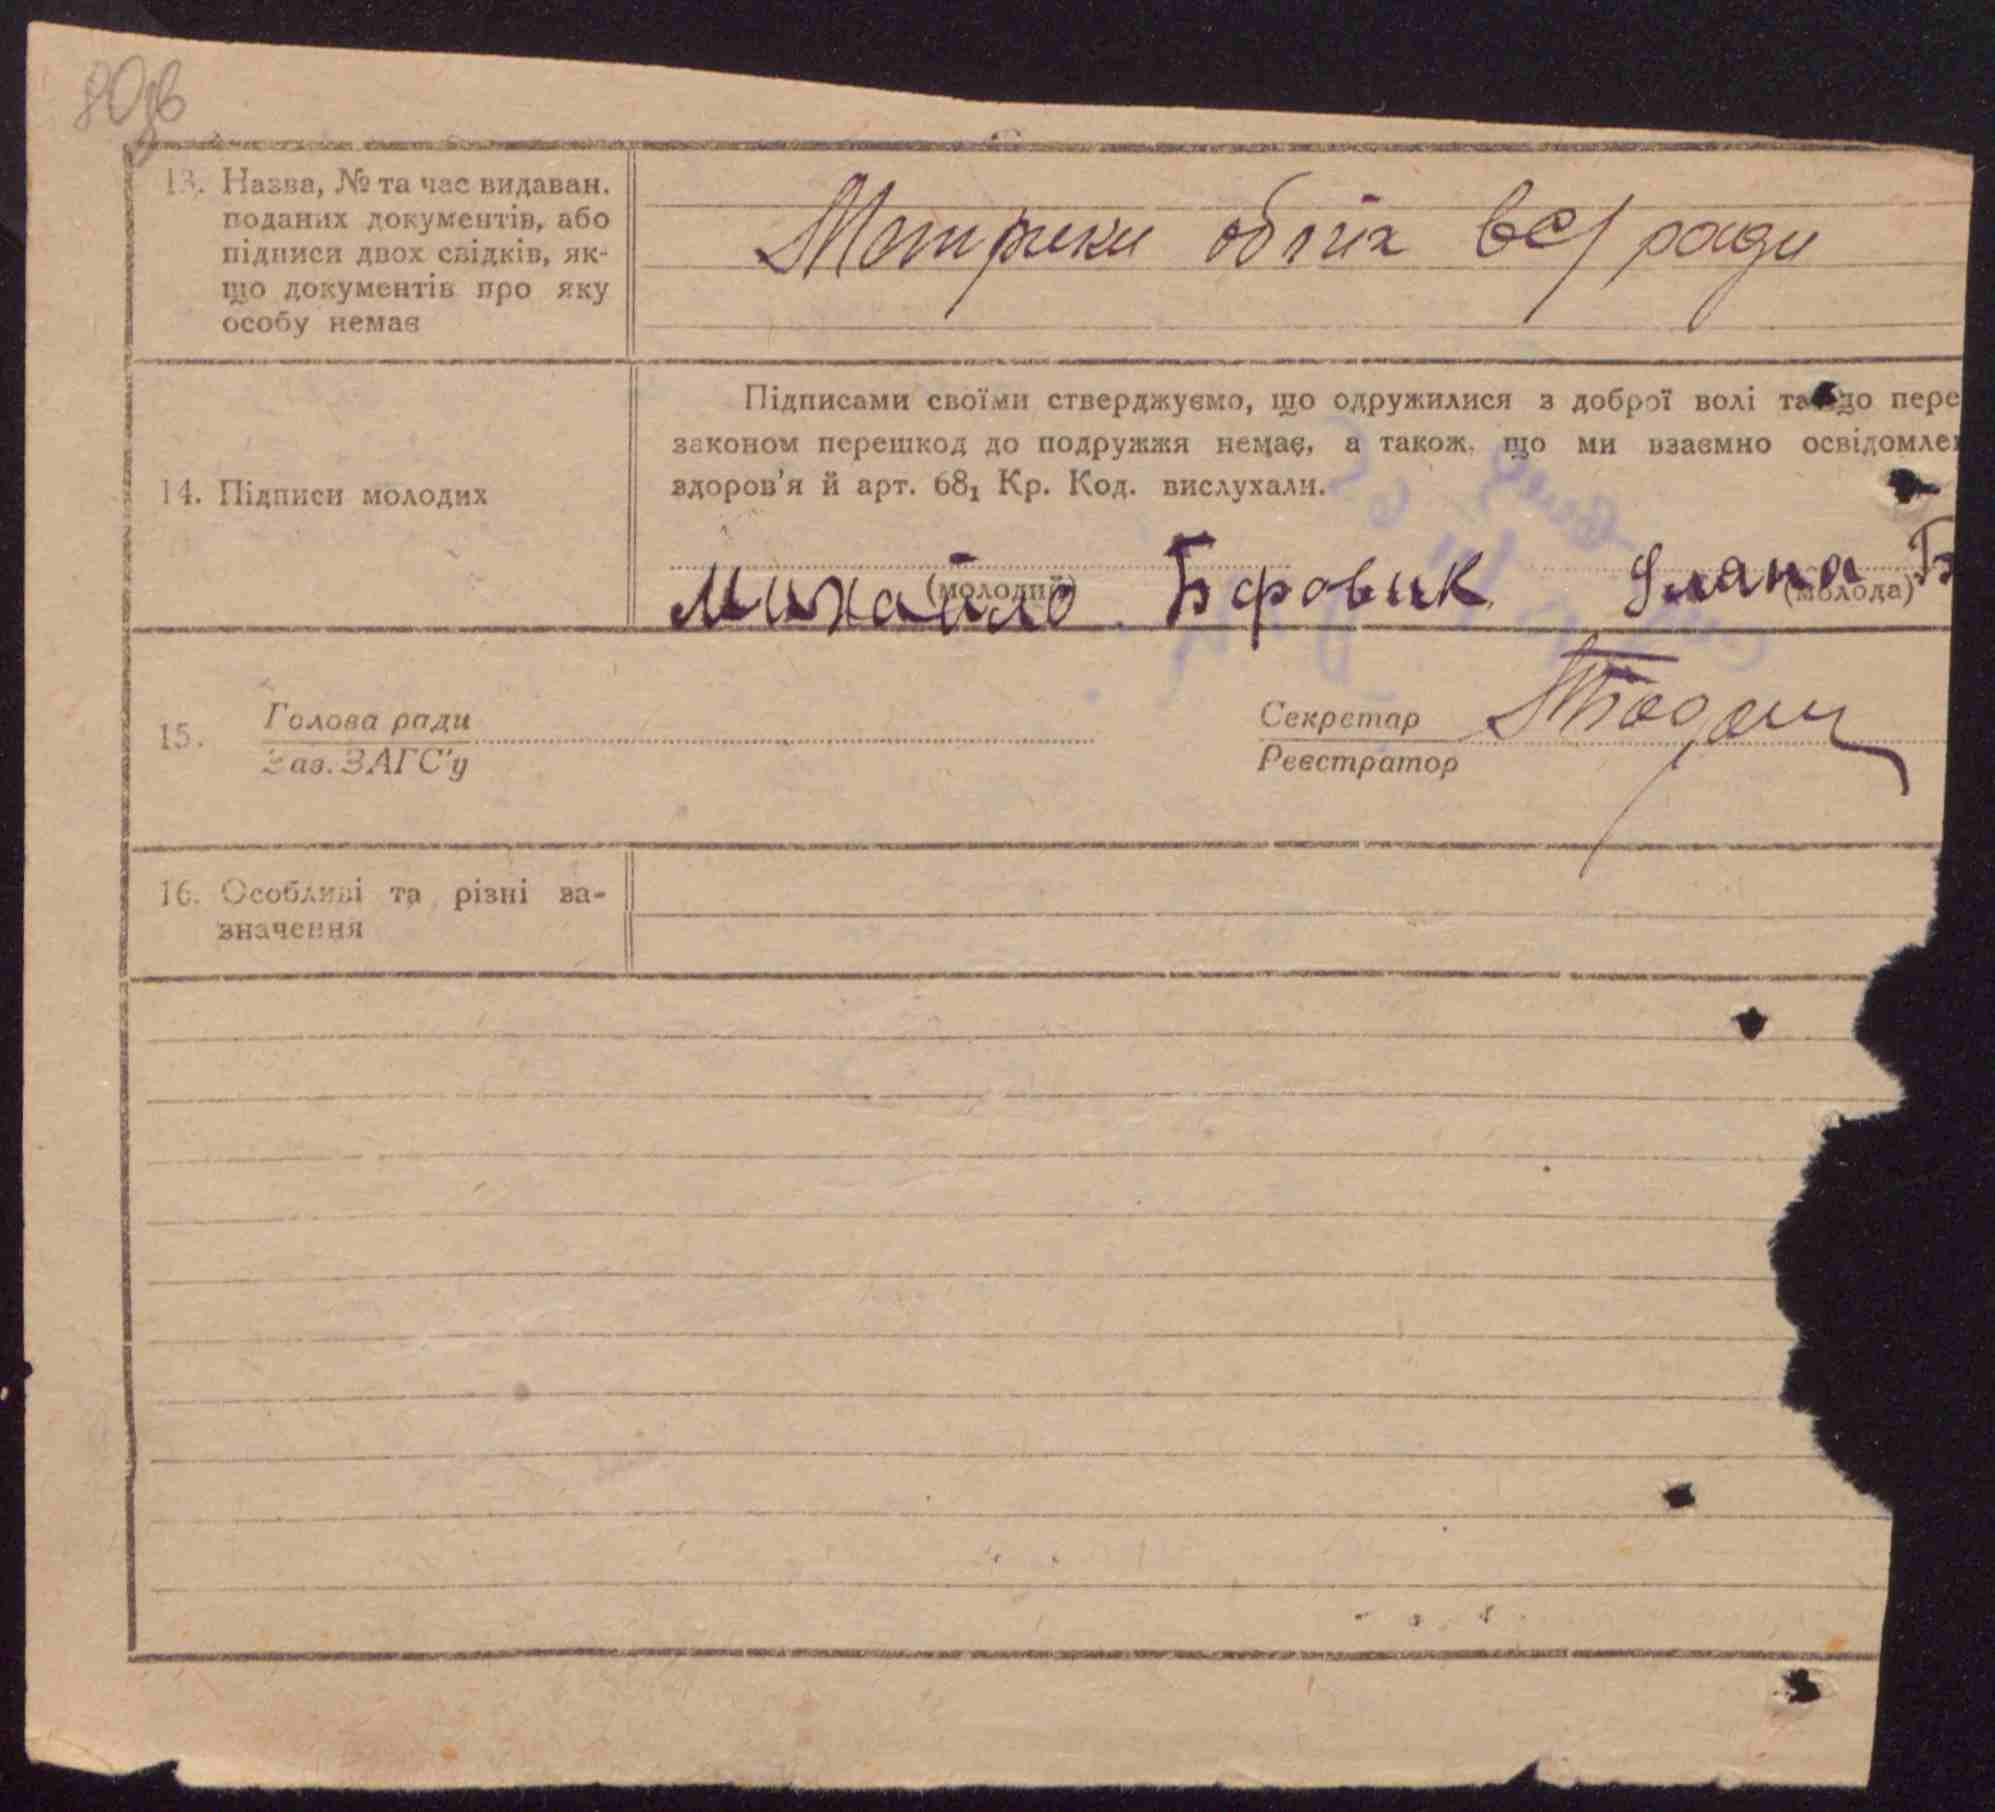 13. Назва, № та час видаван.
поданих документів, або
підписи двох свідків, як-
що документів про яку
особу немає
Мотрики обоїх вс/ ради
14. Підписи молодих
Підписами своїми стверджуємо, що одружилися з доброї волі та що пере
законом перешкод до подружжя немає, а також, що ми взаємно освідомле
здоров'я й арт. 68₁ Кр. Код. вислухали.
Михайло Бфовик Улана Б
(молодий) (молода)
15. Голова ради Секретар
Зав. ЗАГС'у Реєстратор
16. Особливі та різні за-
значення